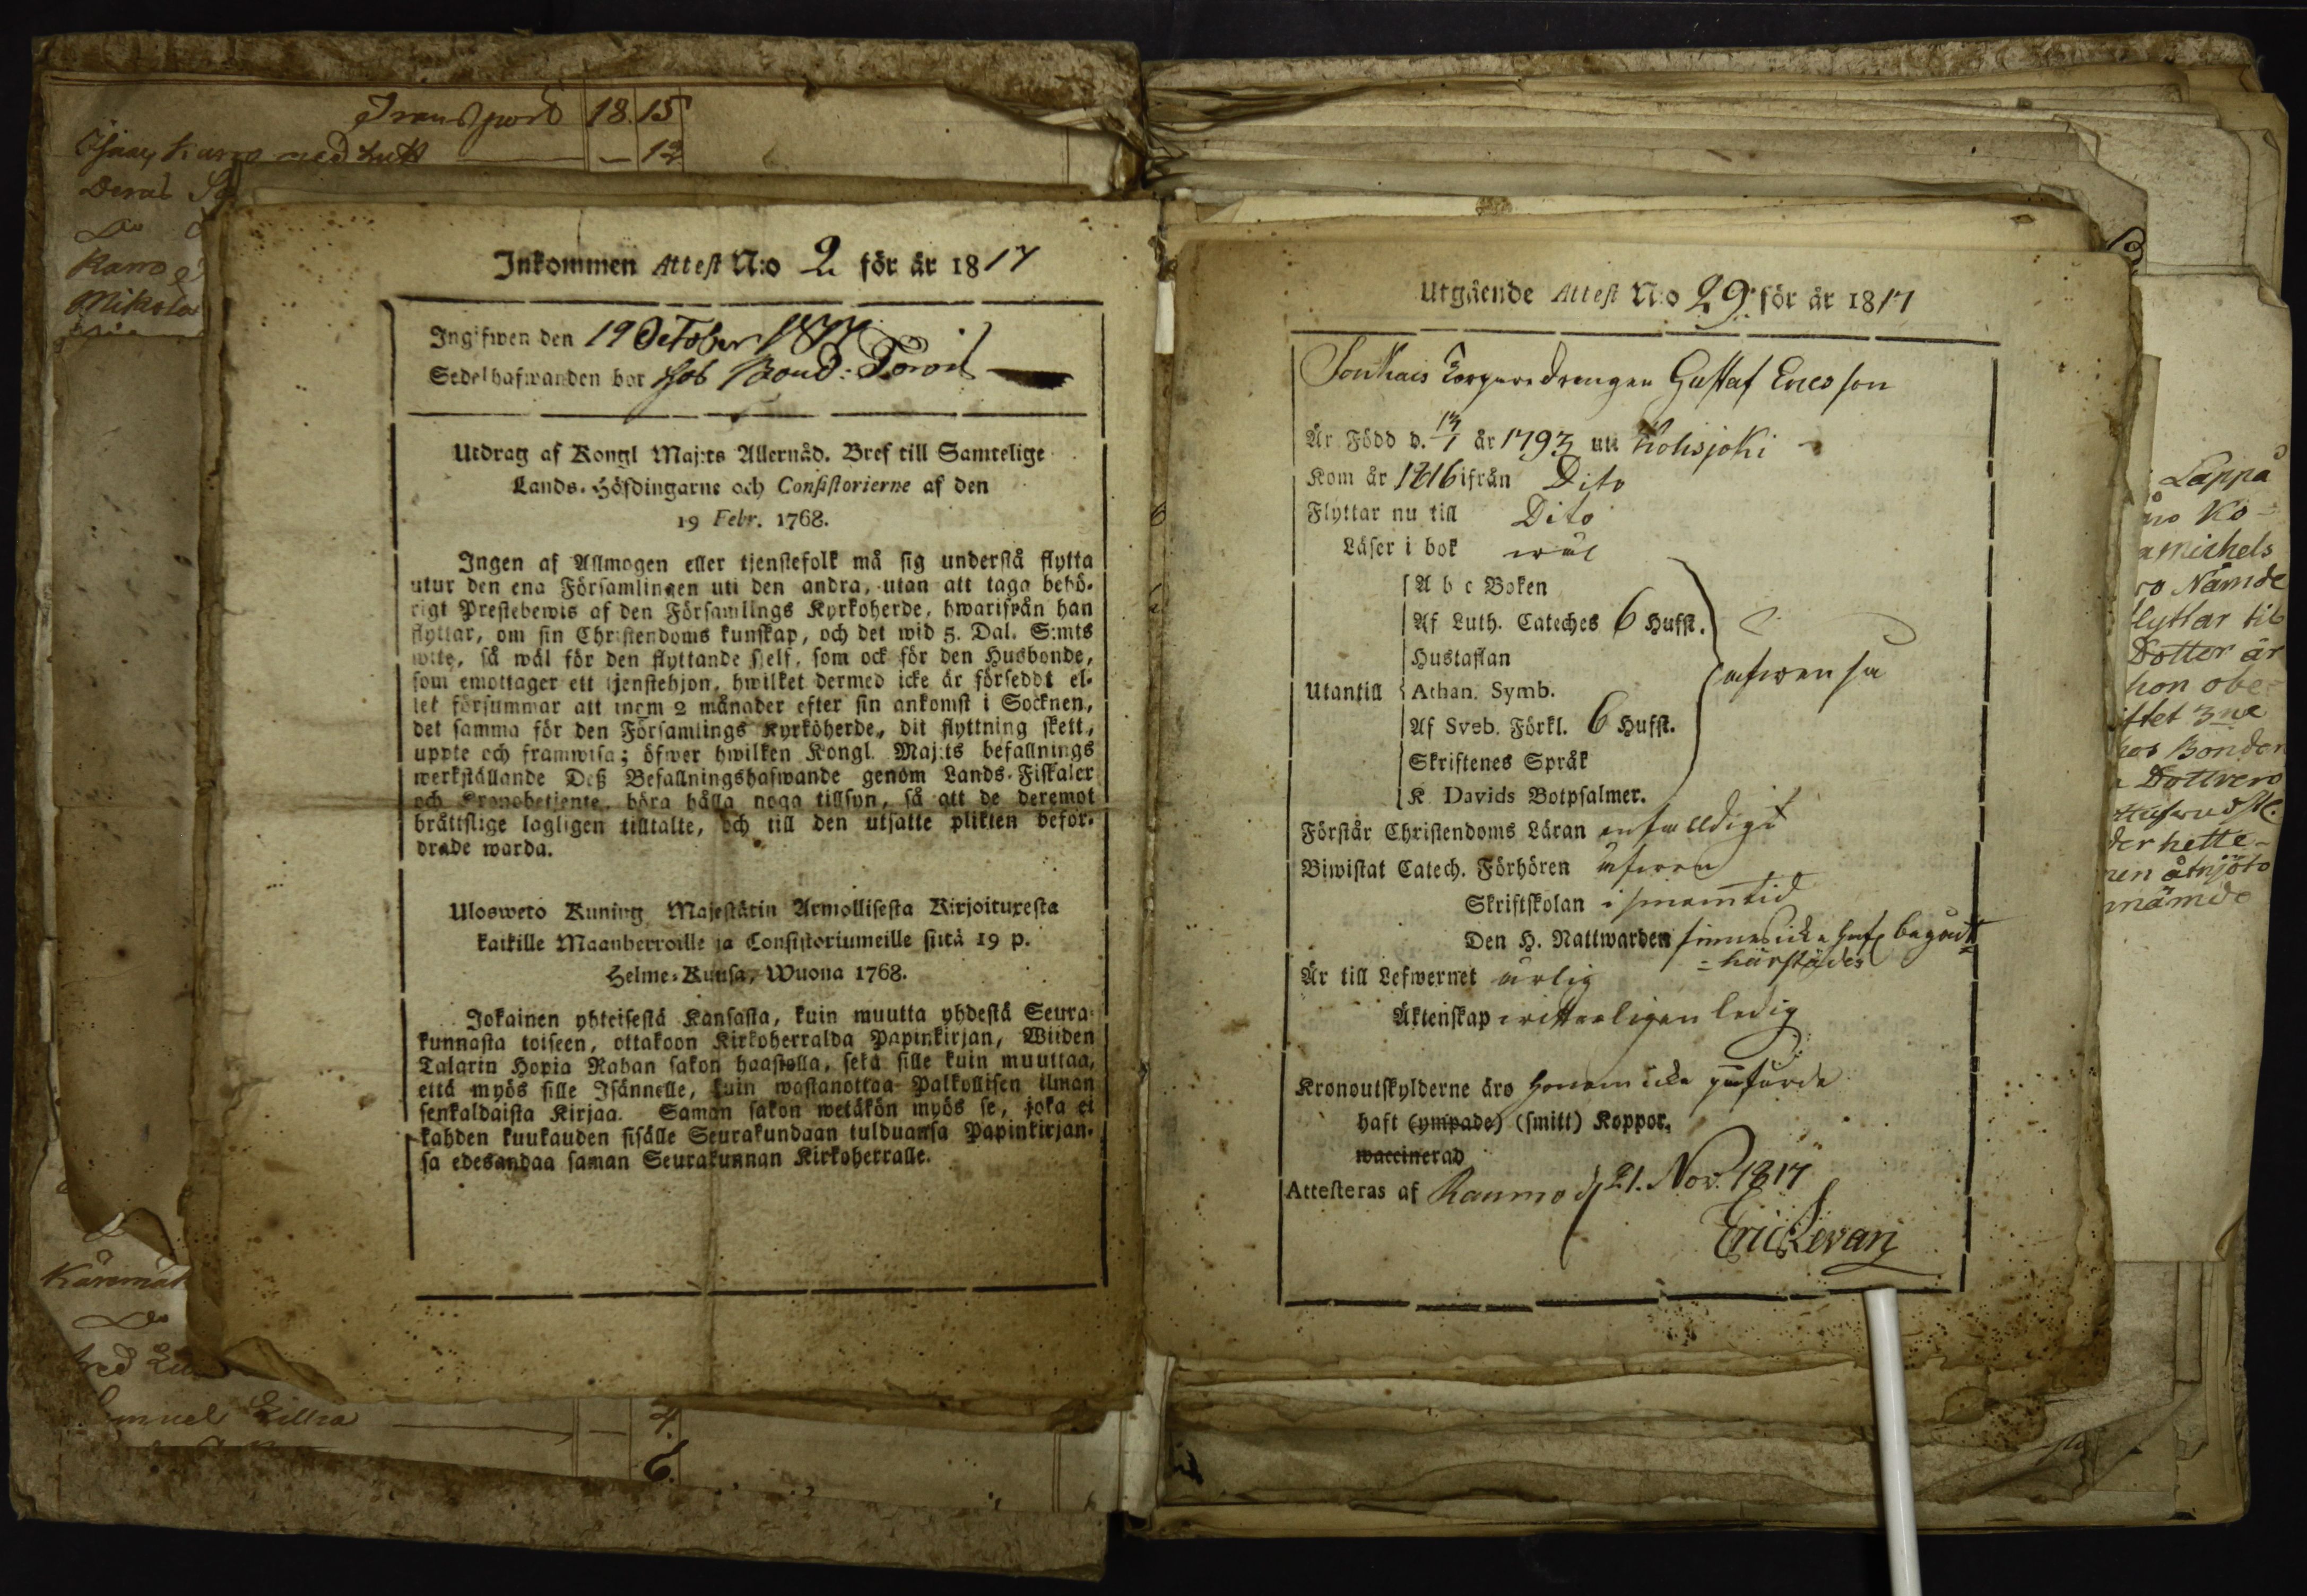 Transport 18. 15
Karro med hust — 12
Deras
Do
Karro
Mikola
Inkommen Attest N:o 2 för år 1817
Ingifwen den 19 October 1817
Sedelhafwanden bor hos Bond:
Utdrag af Kongl Maj:ts Allernåd. Bref till Samtelige
Lands-Höfdingarne och Consistorierne af den
19 Febr. 1768.
Ingen af Allmogen eller tjenstefolk må sig understå flytta
utur den ena Församlingen uti den andra, utan att taga behö-
rigt Prestebewis af den Församlings Kyrkoherde, hwarifrån han
flyttar, om sin Christendoms kunskap, och det wid 5. Dal. S:mts
wite, så wäl för den flyttande sjelf, som ock för den Husbonde,
som emottager ett tjenstehjon, hwilket dermed icke är förseddt el-
ler försummar att inom 2 månader efter sin ankomst i Socknen,
det samma för den Församlings Kyrkoherde, dit flyttning skett,
uppte och framwisa; öfwer hwilken Kongl. Maj:ts befallnings
werkställande Deß Befallningshafwande genom Lands-Fiskaler
och Kronobetjente, böra hålla noga tillsyn, så att de deremot
bråttslige lagligen tilltalte, och till den utsatte plikten beför-
drade warda.
Ulosweto Kuning. Majestätin Armollisesta Kirjoituxesta
kaikille Maanherroille ja Consistoriumeille siitä 19 p.
Helme-Kuusa, Wuona 1768.
Jokainen yhteisestä Kansasta, kuin muutta yhdestä Seura-
kunnasta toiseen, ottakoon Kirkoherralda Papinkirjan, Wiiden
Talarin Hopia Rahan sakon haastolla, sekä sille kuin muuttaa,
että myös sille Isännelle, kuin wastanottaa Palkollisen ilman
senkaldaista Kirjaa. Saman sakon wetäkön myös se, joka ei
kahden kuukauden sisälle Seurakundaan tulduansa Papinkirjan-
sa edesandaa saman Seurakunnan Kirkoherralle.
Käromäk
Do
Samuel Zillia — 4.
6.
Utgående Attest N:o 29. för år 1817
Drengen Gustaf Ericsson
Är Född d. 13/1 år 1793 uti Kohsjoki
Kom år 1816 ifrån Dito
Flyttar nu till Dito
Läser i bok wäl
Utantill
A b c Boken
Af Luth. Cateches 6 Hufst.
Hustaflan
Athan. Symb.
Af Sveb. Förkl. 6 Hufst.
Skriftenes Språk
K Davids Botpsalmer.
äfwen så
Förstår Christendoms Läran enfalldigt
Biwistat Catech. Förhören äfwen
Skriftskolan i sinom tid
Den H. Nattwarden finnes icke haf begådt
härstädes
Är till Lefwernet ärlig
Äktenskap witterligen ledig
Kronoutskylderne äro honom icke påförde
haft (ympade) (smitt) Koppor,
waccinerad
Attesteras af Raumo d 21. Nov. 1817
Eric Levan
Lappa
no Ko-
Michels
ro Nämde
flyttar til
Dotter är
hon obe-
iftet 3ne
hos Bonden
der hette
en åtnjöto
nämde